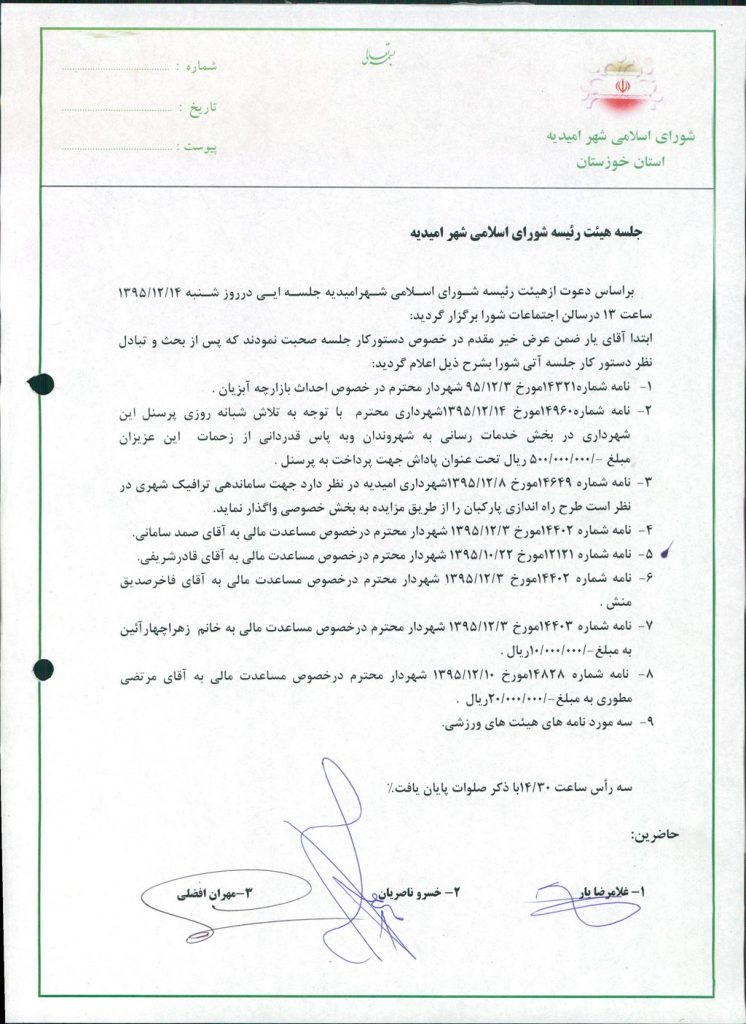 بسمه تعالی
شورای اسلامی شهر امیدیه
استان خوزستان
شماره :
تاریخ :
پیوست :
جلسه هیئت رئیسه شورای اسلامی شهر امیدیه
براساس دعوت ازهیئت رئیسه شورای اسلامی شهرامیدیه جلسه ایی درروز شنبه ۱۳۹۵/۱۲/۱۴
ساعت ۱۳ درسالن اجتماعات شورا برگزار گردید:
ابتدا آقای یار ضمن عرض خیر مقدم در خصوص دستورکار جلسه صحبت نمودند که پس از بحث و تبادل
نظر دستور کار جلسه آتی شورا بشرح ذیل اعلام گردید:
۱- نامه شماره۱۴۳۲۱مورخ ۹۵/۱۲/۳ شهردار محترم در خصوص احداث بازارچه آبزیان .
۲- نامه شماره۱۴۹۶۰مورخ ۱۳۹۵/۱۲/۱۴شهرداری محترم با توجه به تلاش شبانه روزی پرسنل این
شهرداری در بخش خدمات رسانی به شهروندان وبه پاس قدردانی از زحمات این عزیزان
مبلغ -/۵۰۰/۰۰۰/۰۰۰ ریال تحت عنوان پاداش جهت پرداخت به پرسنل .
۳- نامه شماره ۱۴۶۴۹مورخ ۱۳۹۵/۱۲/۸شهرداری امیدیه در نظر دارد جهت ساماندهی ترافیک شهری در
نظر است طرح راه اندازی پارکبان را از طریق مزایده به بخش خصوصی واگذار نماید.
۴- نامه شماره ۱۴۴۰۲مورخ ۱۳۹۵/۱۲/۳ شهردار محترم درخصوص مساعدت مالی به آقای صمد سامانی.
۵- نامه شماره ۱۲۱۲۱مورخ ۱۳۹۵/۱۰/۲۲ شهردار محترم درخصوص مساعدت مالی به آقای قادرشریفی.
۶- نامه شماره ۱۴۴۰۲مورخ ۱۳۹۵/۱۲/۳ شهردار محترم درخصوص مساعدت مالی به آقای فاخرصدیق
منش .
۷- نامه شماره ۱۴۴۰۳مورخ ۱۳۹۵/۱۲/۳ شهردار محترم درخصوص مساعدت مالی به خانم زهراچهارآئین
به مبلغ-/۱۰/۰۰۰/۰۰۰ریال .
۸- نامه شماره ۱۴۸۲۸مورخ ۱۳۹۵/۱۲/۱۰ شهردار محترم درخصوص مساعدت مالی به آقای مرتضی
مطوری به مبلغ-/۲۰/۰۰۰/۰۰۰ریال .
۹- سه مورد نامه های هیئت های ورزشی.
سه رأس ساعت ۱۴/۳۰با ذکر صلوات پایان یافت٪
حاضرین:
۱- غلامرضا یار ۲- خسرو ناصریان ۳-مهران افضلی